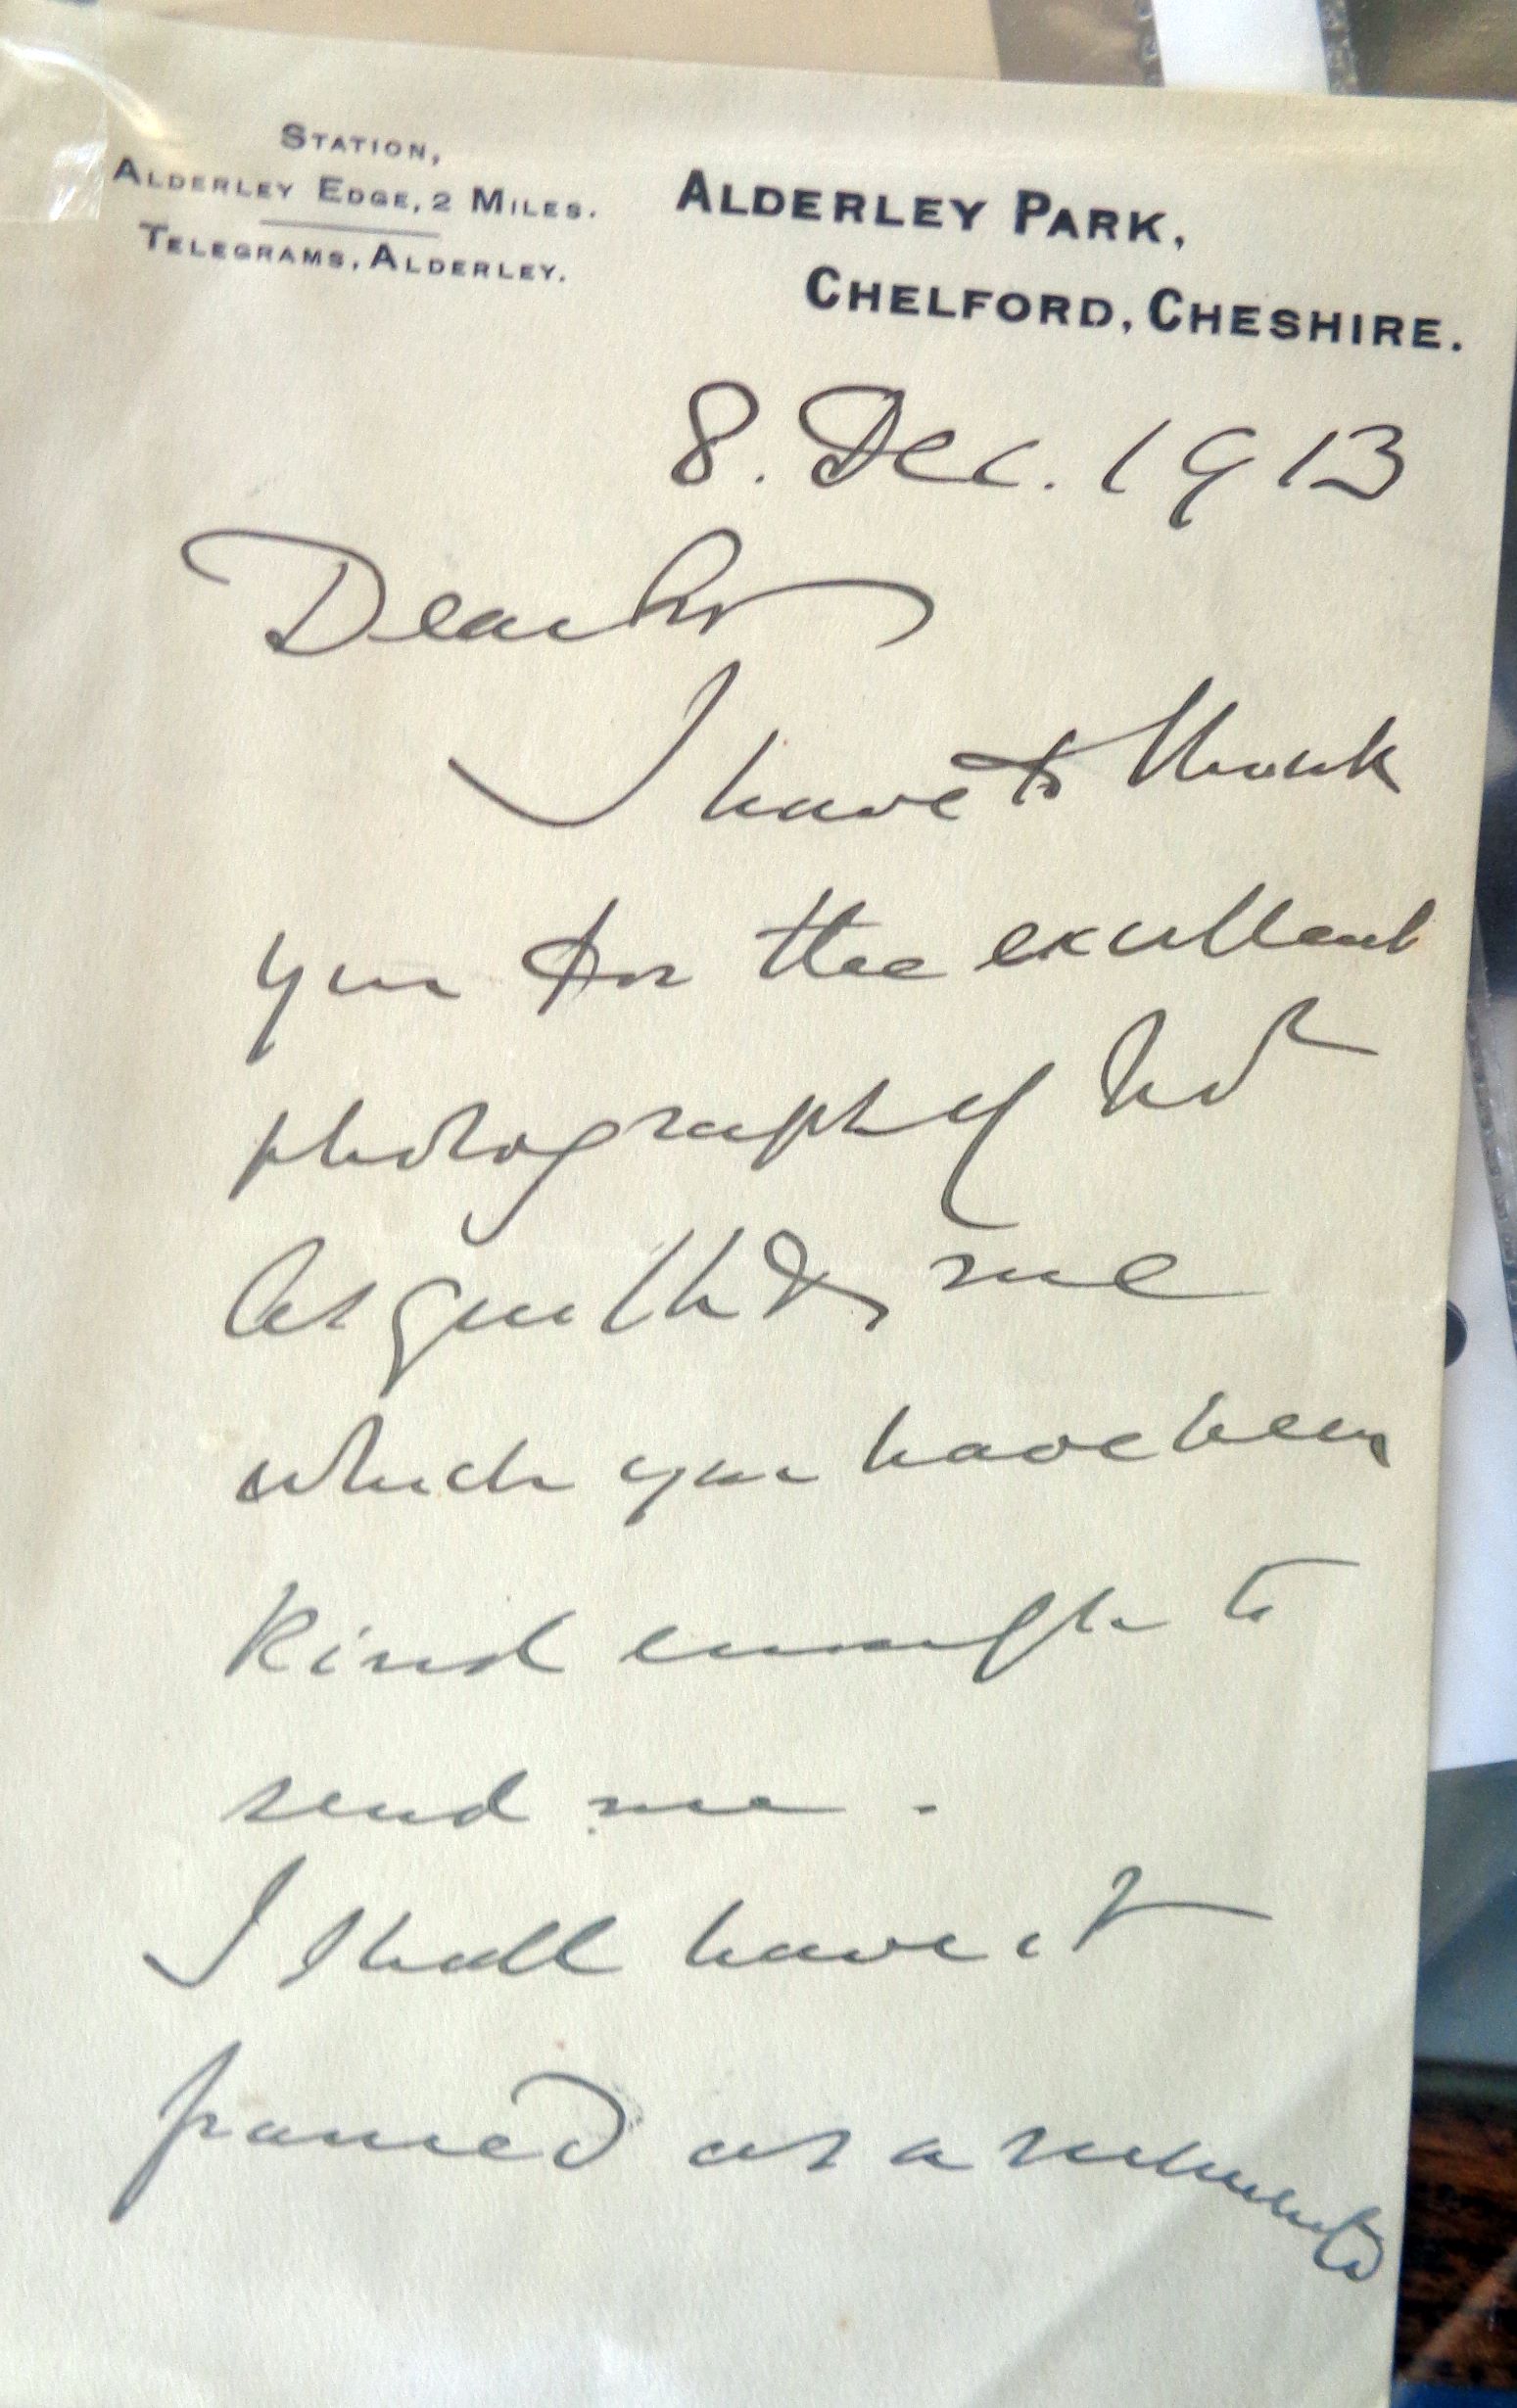 STATION,
ALDERLEY EDGE, 2 MILES.
TELEGRAMS, ALDERLEY.
ALDERLEY PARK,
CHELFORD, CHESHIRE.
8. Dec. 1913
Dear Sir
I have to thank
you for the excellent
photograph of Mr
Asquith & me
which you have been
kind enough to
send me.
I shall have it
framed as a memento